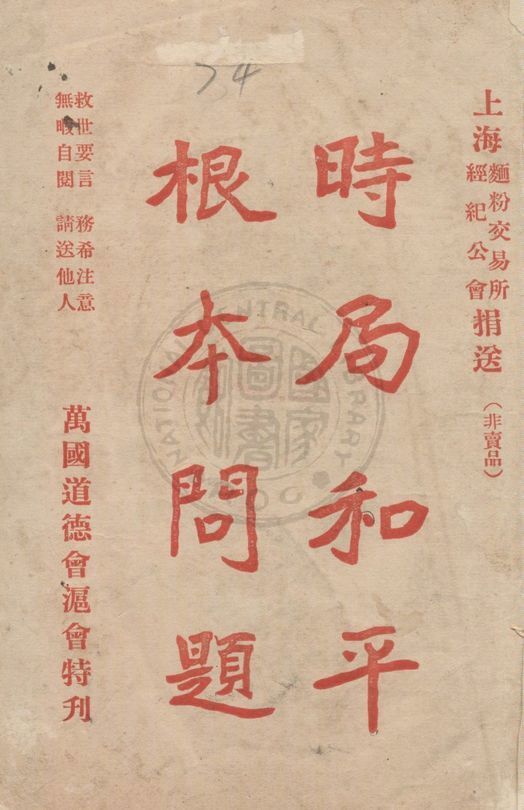 上海麵粉交易所經紀公會捐送（非賣品）
時局和平
根本問題
救世要言 務希注意
無暇自閱 請送他人
萬國道德會滬會特刊
74
NATIONAL LIBRARY